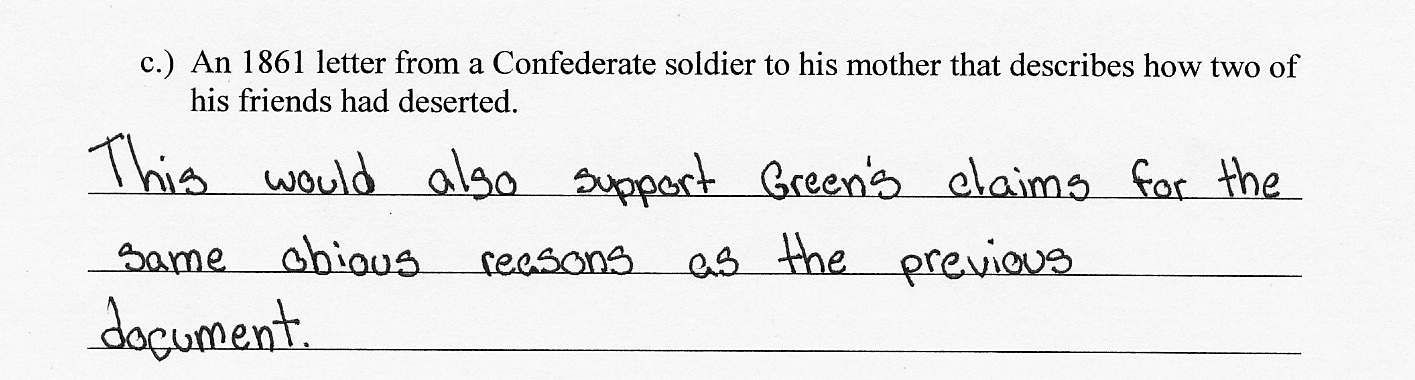 c.) An 1861 letter from a Confederate soldier to his mother that describes how two of
his friends had deserted.
This would also support Green's claims for the
same obious reasons as the previous
document.